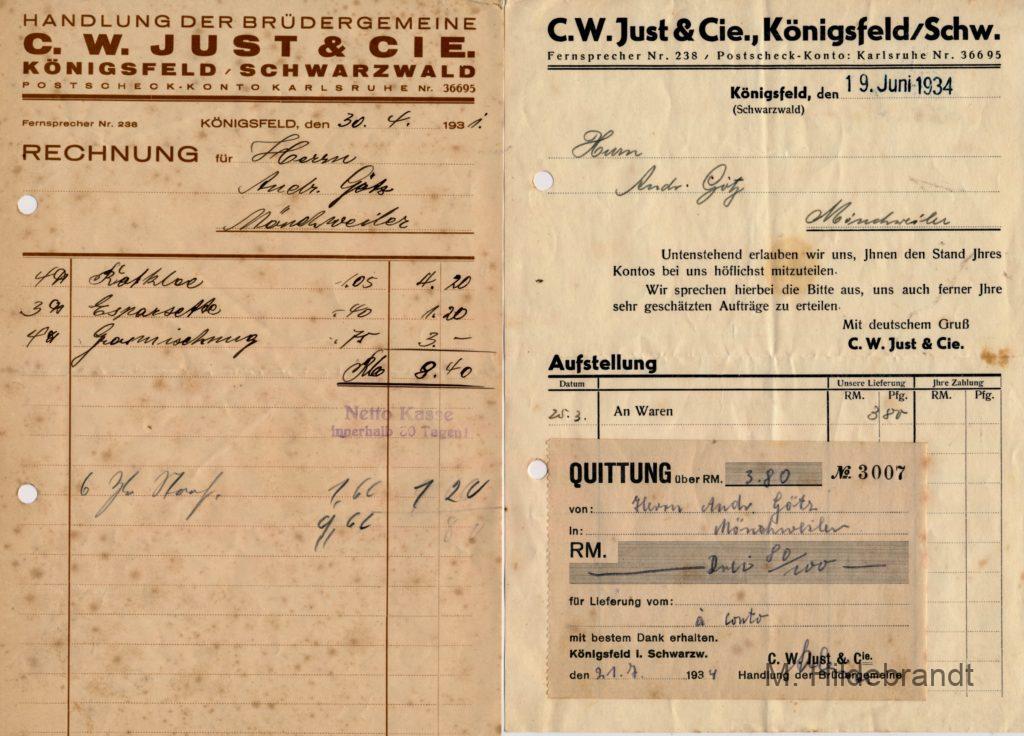 HANDLUNG DER BRÜDERGEMEINE
C. W. JUST & CIE.
KÖNIGSFELD / SCHWARZWALD
POSTSCHECK-KONTO KARLSRUHE Nr. 36695
Fernsprecher Nr. 238 KÖNIGSFELD, den 30. 4. 1931.
RECHNUNG für Herrn
Andr. Götz
Mönchweiler
4 Rotklee -.05 4. 20
3 Esparsette -.40 1.20
4 Grasmischung -.75 3. –
RM 8.40
Netto Kasse
innerhalb 30 Tagen!
6 1,60 1 20
9,60
C. W. Just & Cie., Königsfeld/Schw.
Fernsprecher Nr. 238 / Postscheck-Konto: Karlsruhe Nr. 36695
Königsfeld, den 19. Juni 1934
(Schwarzwald)
Herrn
Andr. Götz
Mönchweiler
Untenstehend erlauben wir uns, Jhnen den Stand Jhres
Kontos bei uns höflichst mitzuteilen.
Wir sprechen hierbei die Bitte aus, uns auch ferner Jhre
sehr geschätzten Aufträge zu erteilen.
Mit deutschem Gruß
C. W. Just & Cie.
Aufstellung
Datum Unsere Lieferung Jhre Zahlung
RM. Pfg. RM. Pfg.
25.3. An Waren 3 80
QUITTUNG über RM. 3.80 No. 3007
von: Herrn Andr. Götz
in: Mönchweiler
RM. Drei 80/100
für Lieferung vom:
à conto
mit bestem Dank erhalten.
Königsfeld i. Schwarzw. C. W. Just & Cie.
den 21. 7. 1934 Handlung der Brüdergemeine
M. Hildebrandt